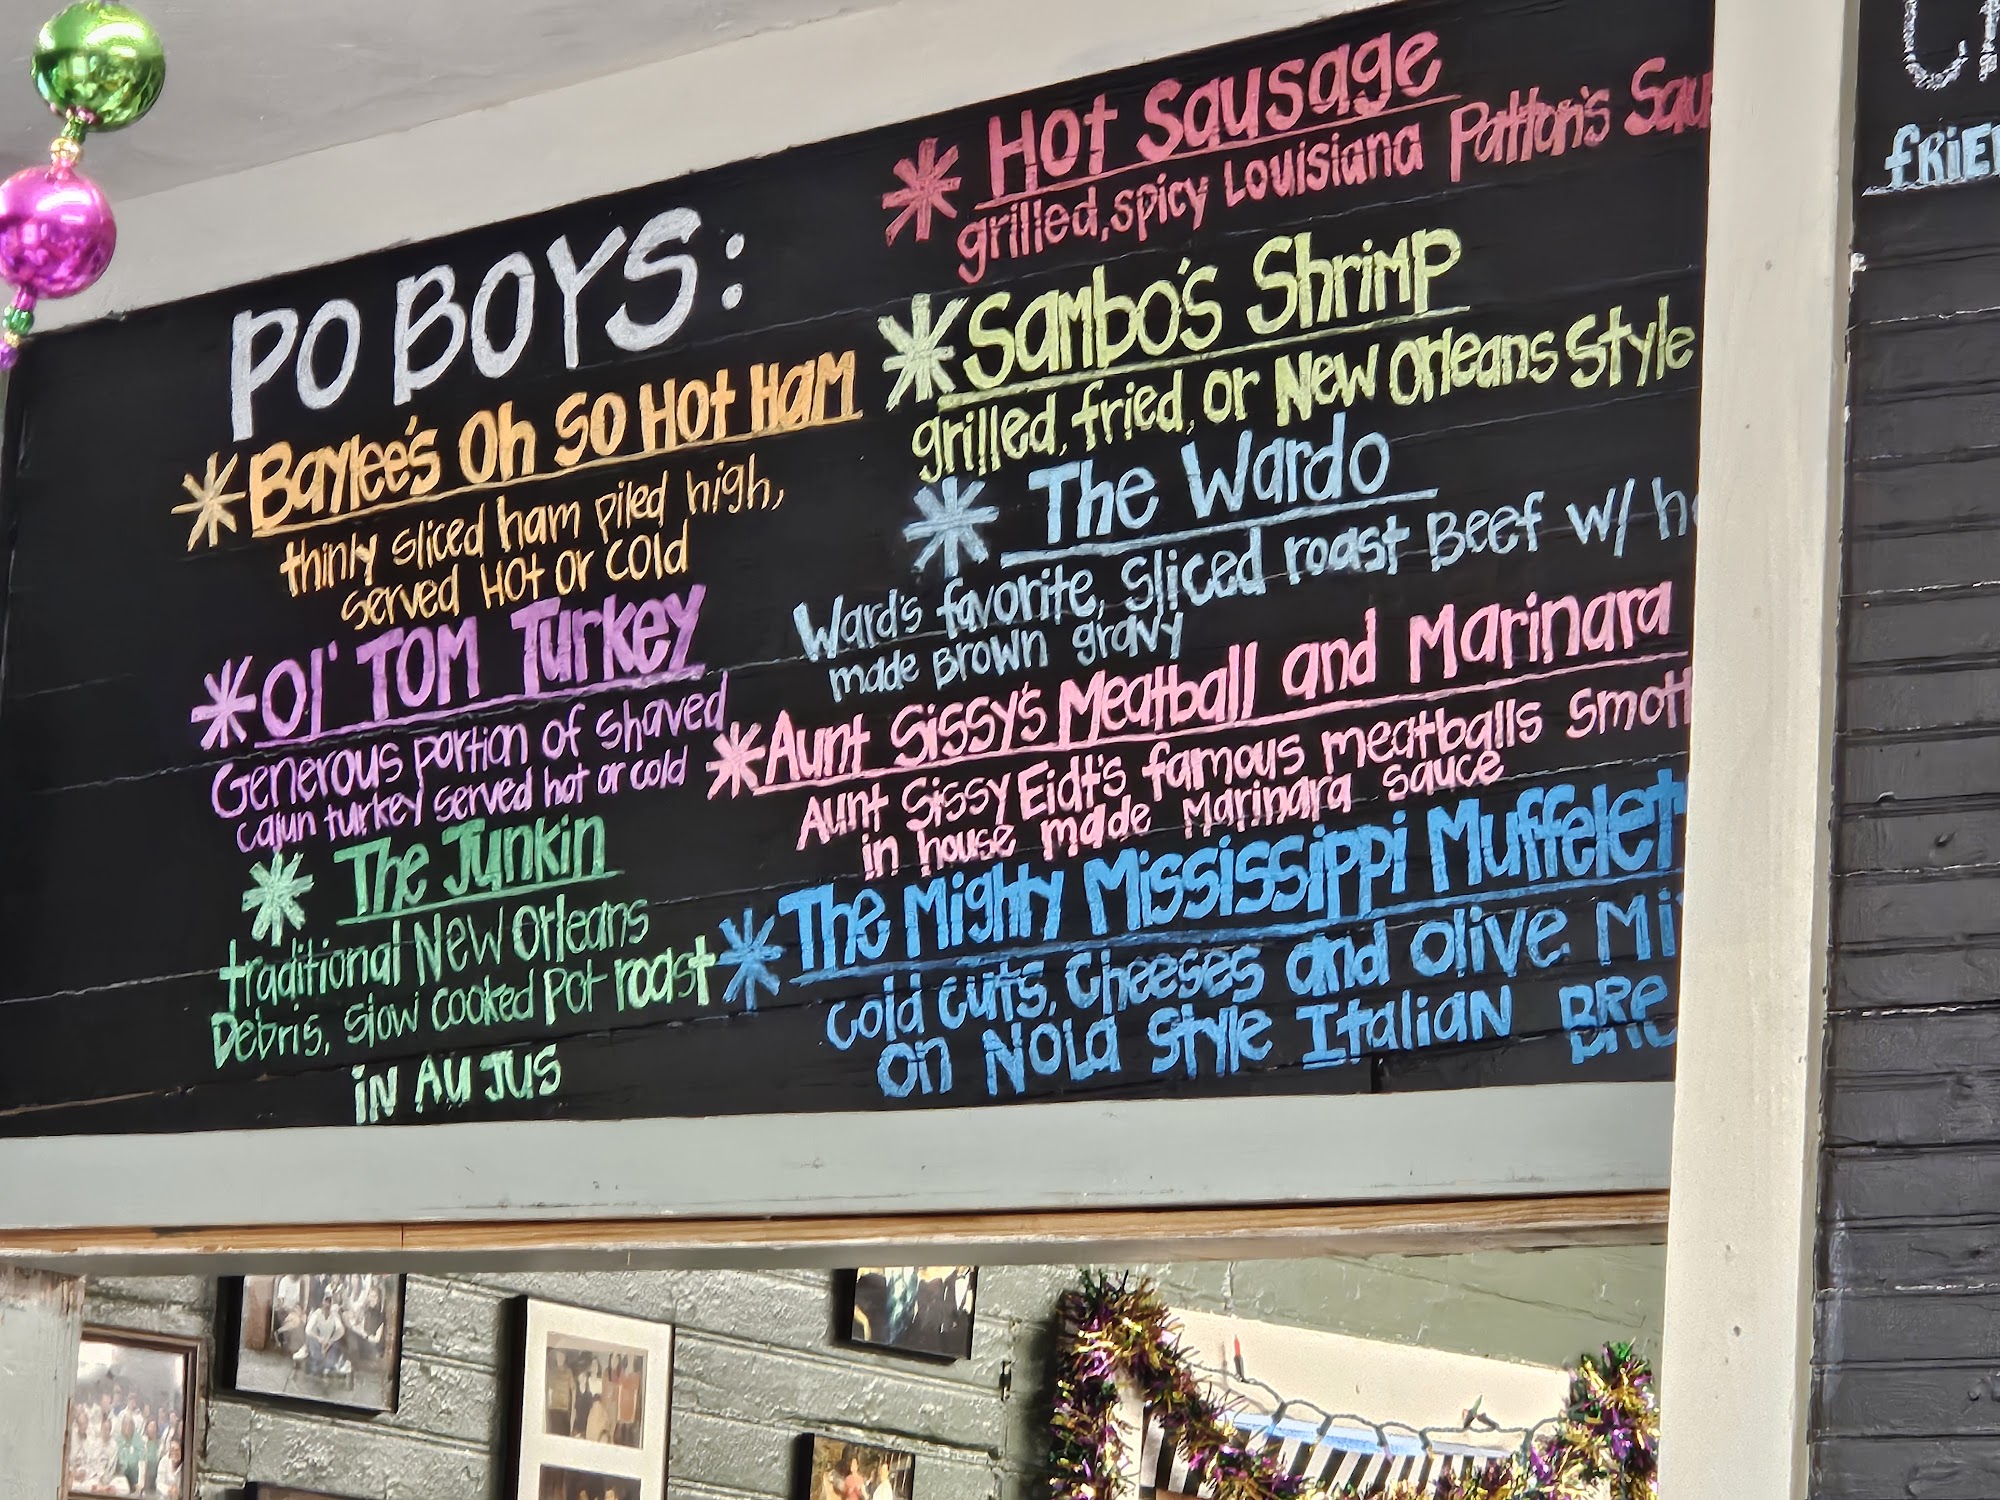 PO BOYS:
Baylee's Oh So Hot Ham
thinly sliced ham piled high,
served Hot or cold
Ol' TOM Turkey
Generous portion of shaved
cajun turkey served hot or cold
The Junkin
traditional New Orleans
Debris, slow cooked pot roast
in AU JUS
Hot Sausage
grilled, spicy Louisiana Patton's
Sambo's Shrimp
grilled, fried, or New Orleans Style
The Wardo
Ward's favorite, sliced roast Beef w/
made Brown gravy
Aunt Sissy's Meatball and Marinara
Aunt Sissy Eidt's famous meatballs
in house made Marinara sauce
The Mighty Mississippi
cold cuts, cheeses and olive
on NOLA Style Italian